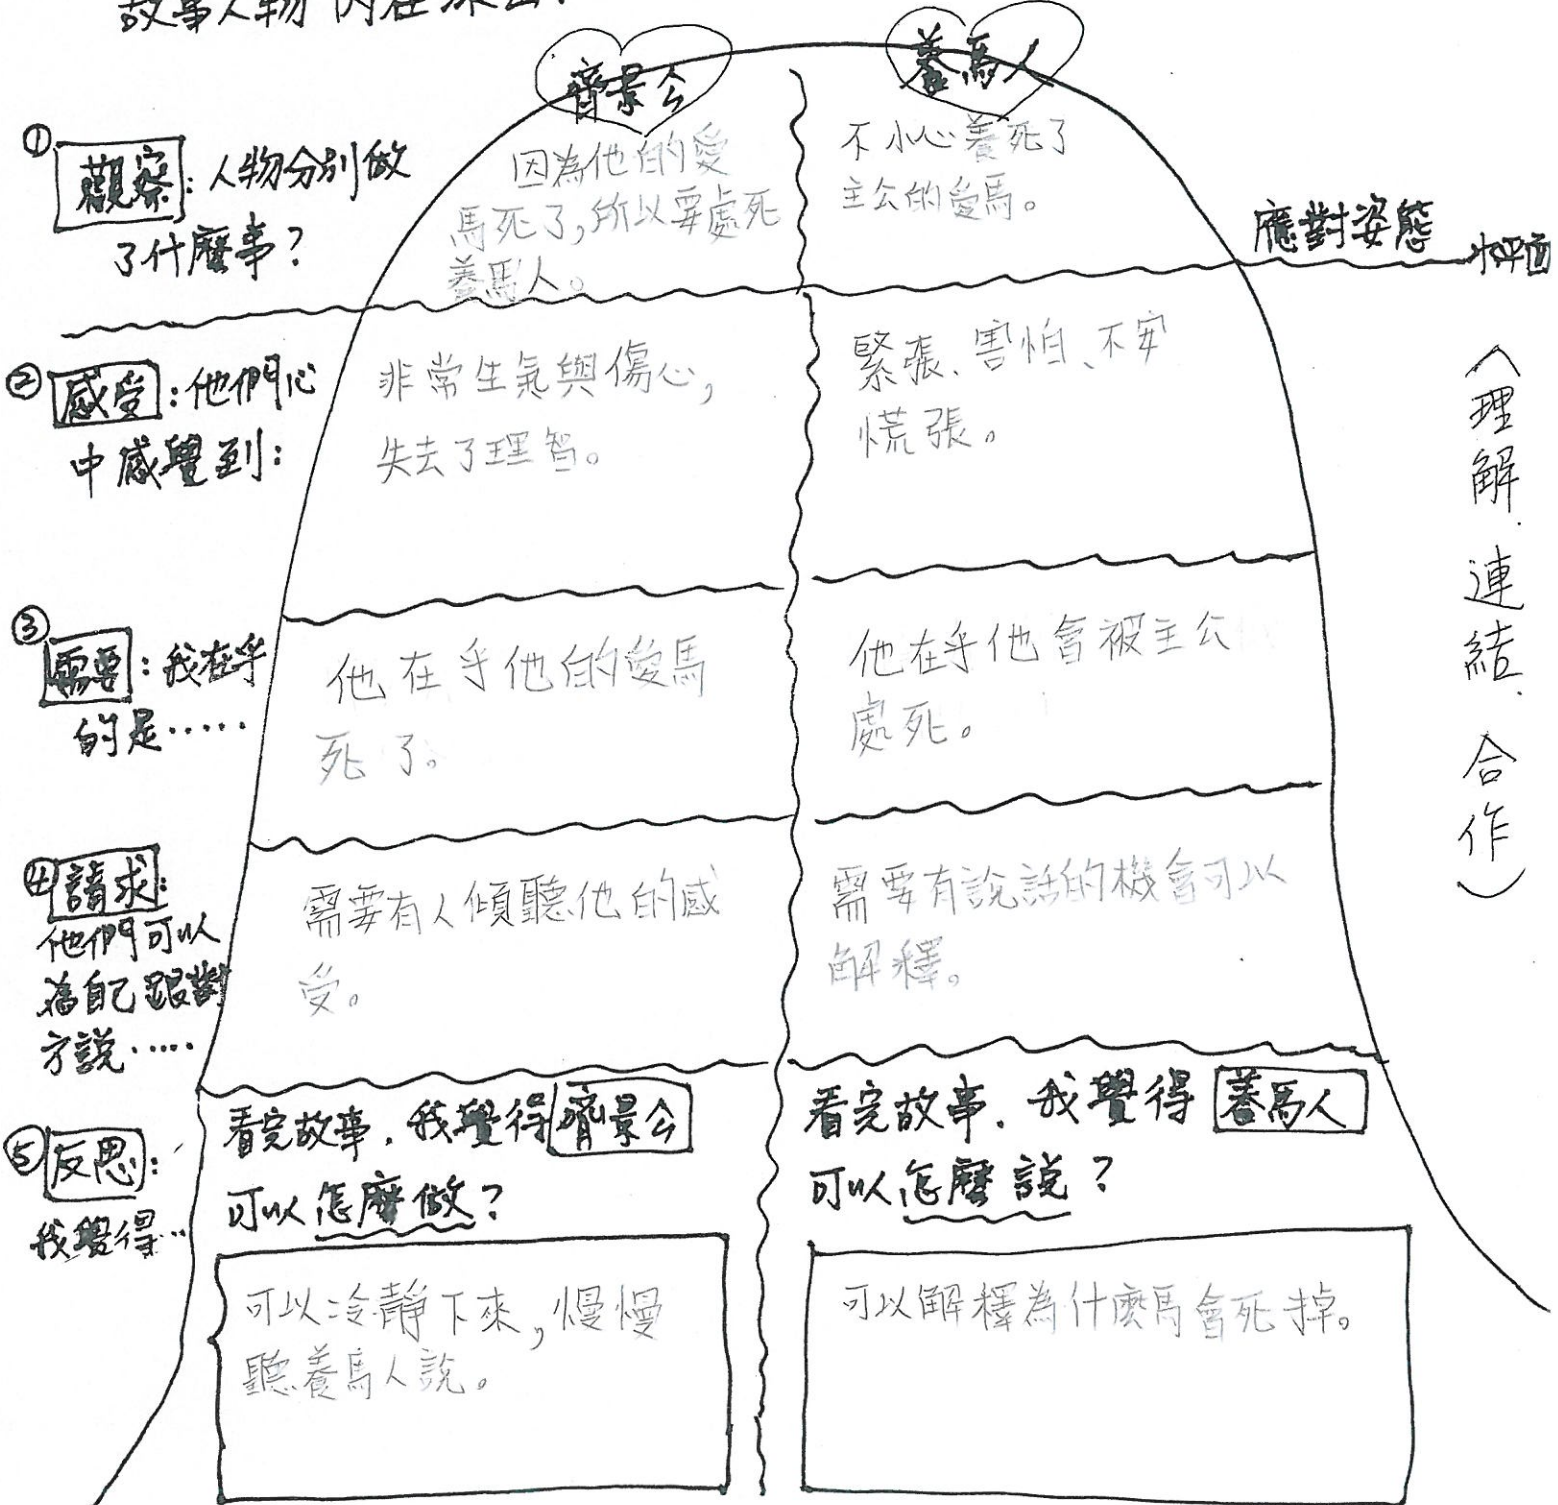 故事人物 內在冰山：
齊景公
養馬人
① 觀察：人物分別做
了什麼事？
因為他的愛
馬死了，所以要處死
養馬人。
不小心養死了
主公的愛馬。
應對姿態
水平面
② 感受：他們心
中感覺到：
非常生氣與傷心，
失去了理智。
緊張、害怕、不安
慌張。
③ 需要：我在乎
的是……
他在乎他的愛馬
死了。
他在乎他會被主公
處死。
④ 請求：
他們可以
為自己跟對
方說……
需要有人傾聽他的感
受。
需要有說話的機會可以
解釋。
（理解、連結、合作）
⑤ 反思：
我覺得…
看完故事，我覺得齊景公
可以怎麼做？
可以冷靜下來，慢慢
聽養馬人說。
看完故事，我覺得養馬人
可以怎麼說？
可以解釋為什麼馬會死掉。